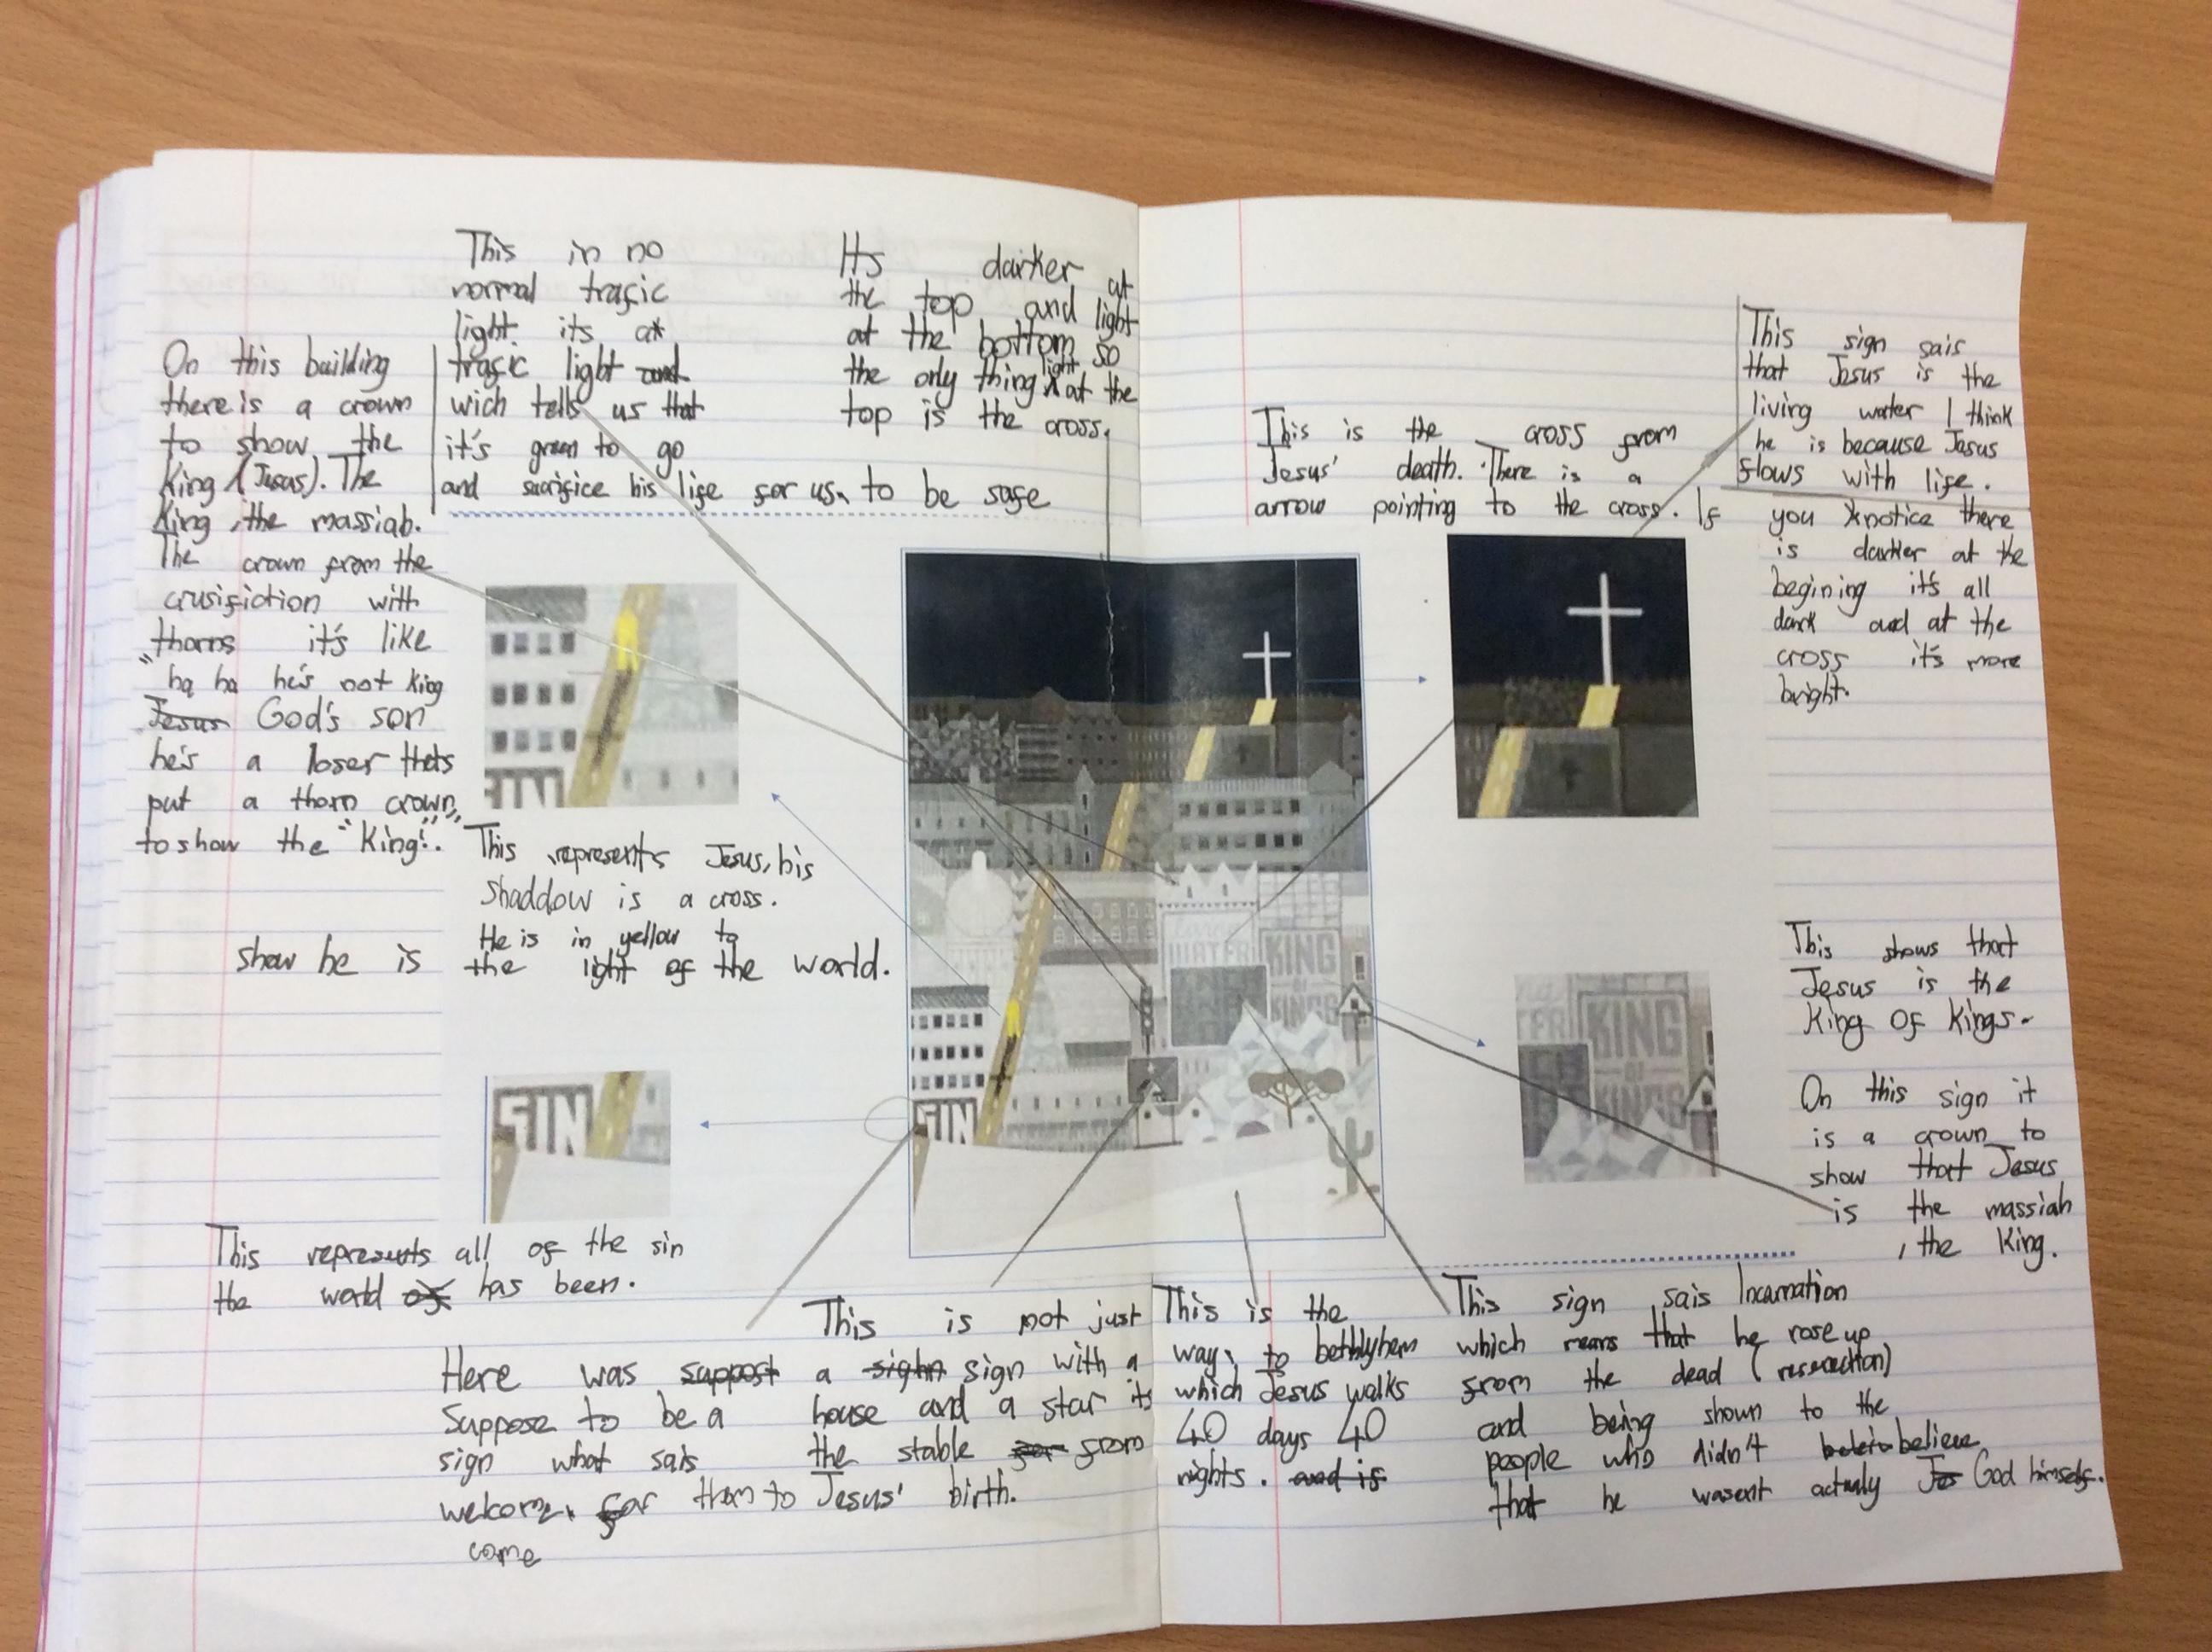 This in no
normal trafic
light. its at
trafic light and
wich tells us that
it's green to go
and sacrifice his life for us, to be safe
Its darker at
the top and light
at the bottom so
the only thing light at the
top is the cross.
On this building
there is a crown
to show the
King (Jesus). The
King, the massiah.
The crown from the
crusifiction with
thorns it's like
"ha ha he's not King
Jesus God's son
he's a loser thets
put a thorn crown"
to show the "King".
This represents Jesus, his
shaddow is a cross.
He is in yellow to
show he is the light of the world.
This represents all of the sin
the world of has been.
Here was suppost
suppose to be a
sign what sais
welcome, for them to
come
This is not just
a sighn sign with a
house and a star its
the stable for from
Jesus' birth.
This is the
way, to bethlyhem
which Jesus walks
40 days 40
nights. and is
This sign sais Incarnation
which means that he rose up
from the dead (reserection)
and being shown to the
people who didn't beleiv believe
that he wasent actualy Jes God himself.
This is the cross from
Jesus' death. There is a
arrow pointing to the cross. If
you notice there
is darker at the
begining it's all
dark and at the
cross it's more
bright.
This sign sais
that Jesus is the
living water I think
he is because Jesus
flows with life.
This shows that
Jesus is the
King of Kings.
On this sign it
is a crown to
show that Jesus
is the massiah
, the King.
SIN
WATER
KING
OF
KINGS
SIN
KING
OF
KINGS